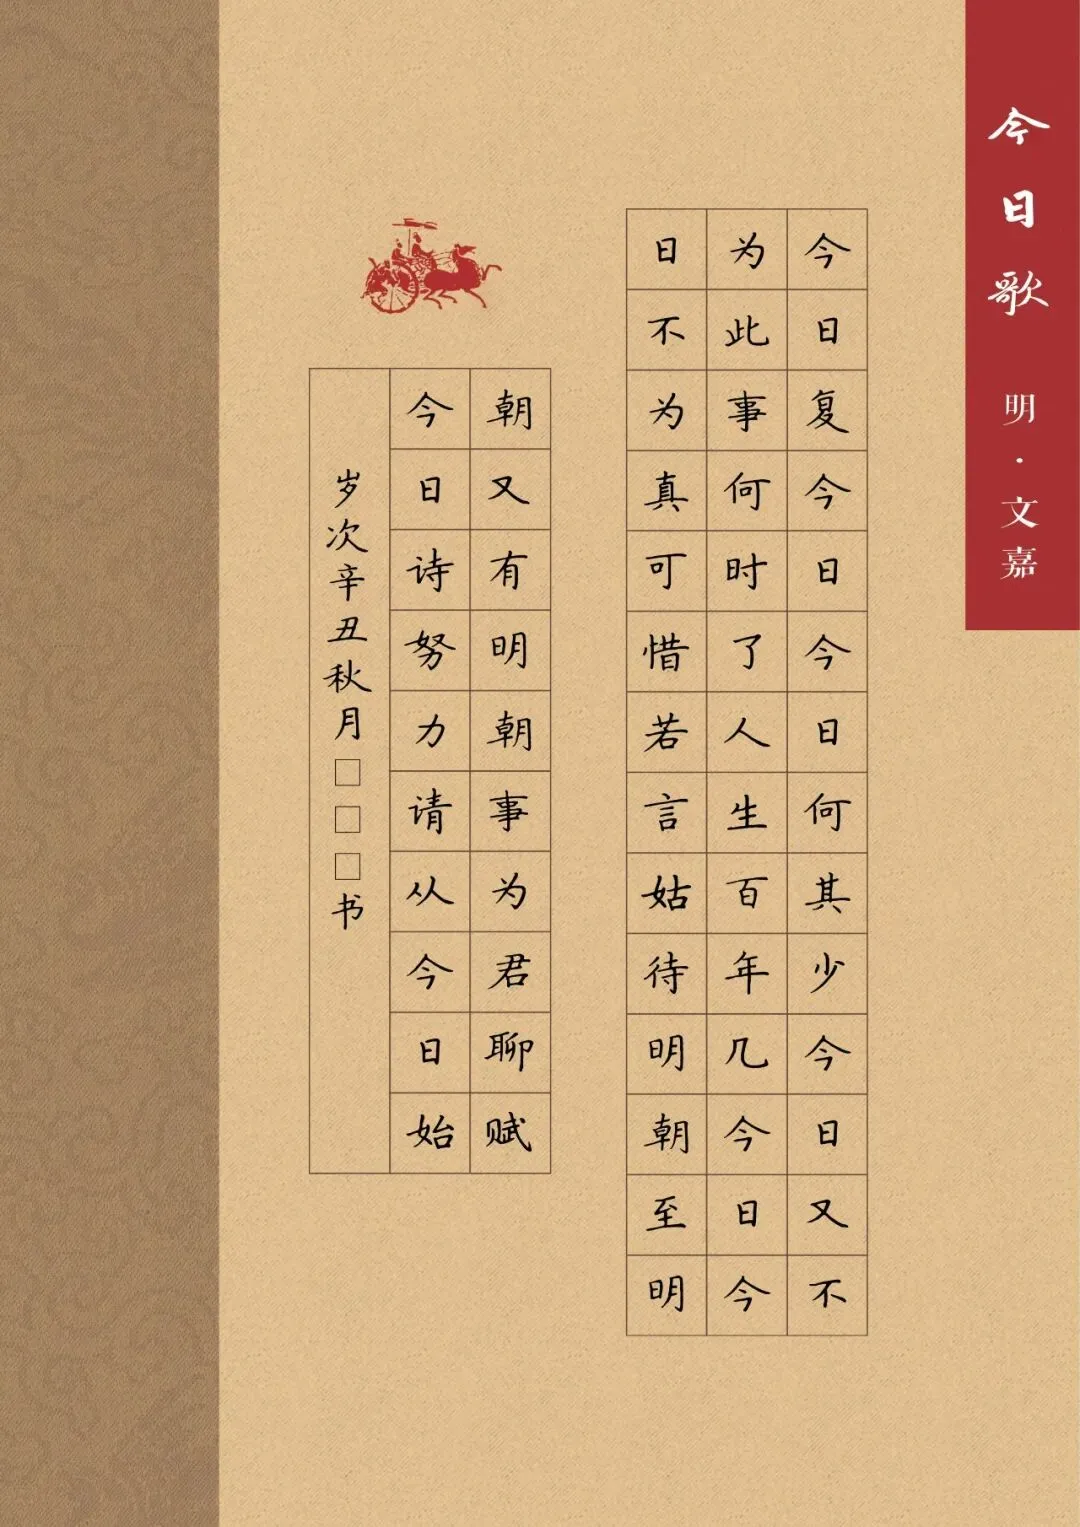 今日歌 明·文嘉
今日复今日今日何其少今日又不
为此事何时了人生百年几今日今
日不为真可惜若言姑待明朝至明
朝又有明朝事为君聊赋
今日诗努力请从今日始
岁次辛丑秋月□□□书